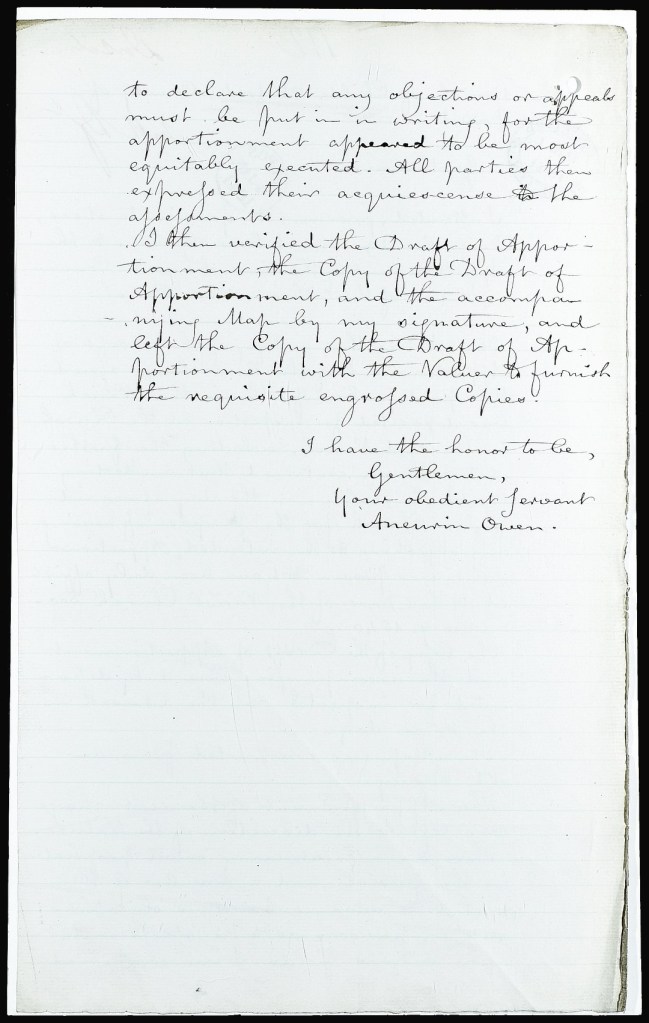 to declare that any objections or appeals
must be put in in writing, for the
apportionment appeared to be most
equitably executed. All parties then
expressed their acquiescense to the
assessments.
I then verified the Draft of Appor-
tionment, the Copy of the Draft of
Apportionment, and the accompa
-nying Map by my signature, and
left the Copy of the Draft of Ap-
portionment with the Valuer to furnish
the requisite engrossed Copies.
I have the honor to be,
Gentlemen,
Your obedient servant
Aneurin Owen.